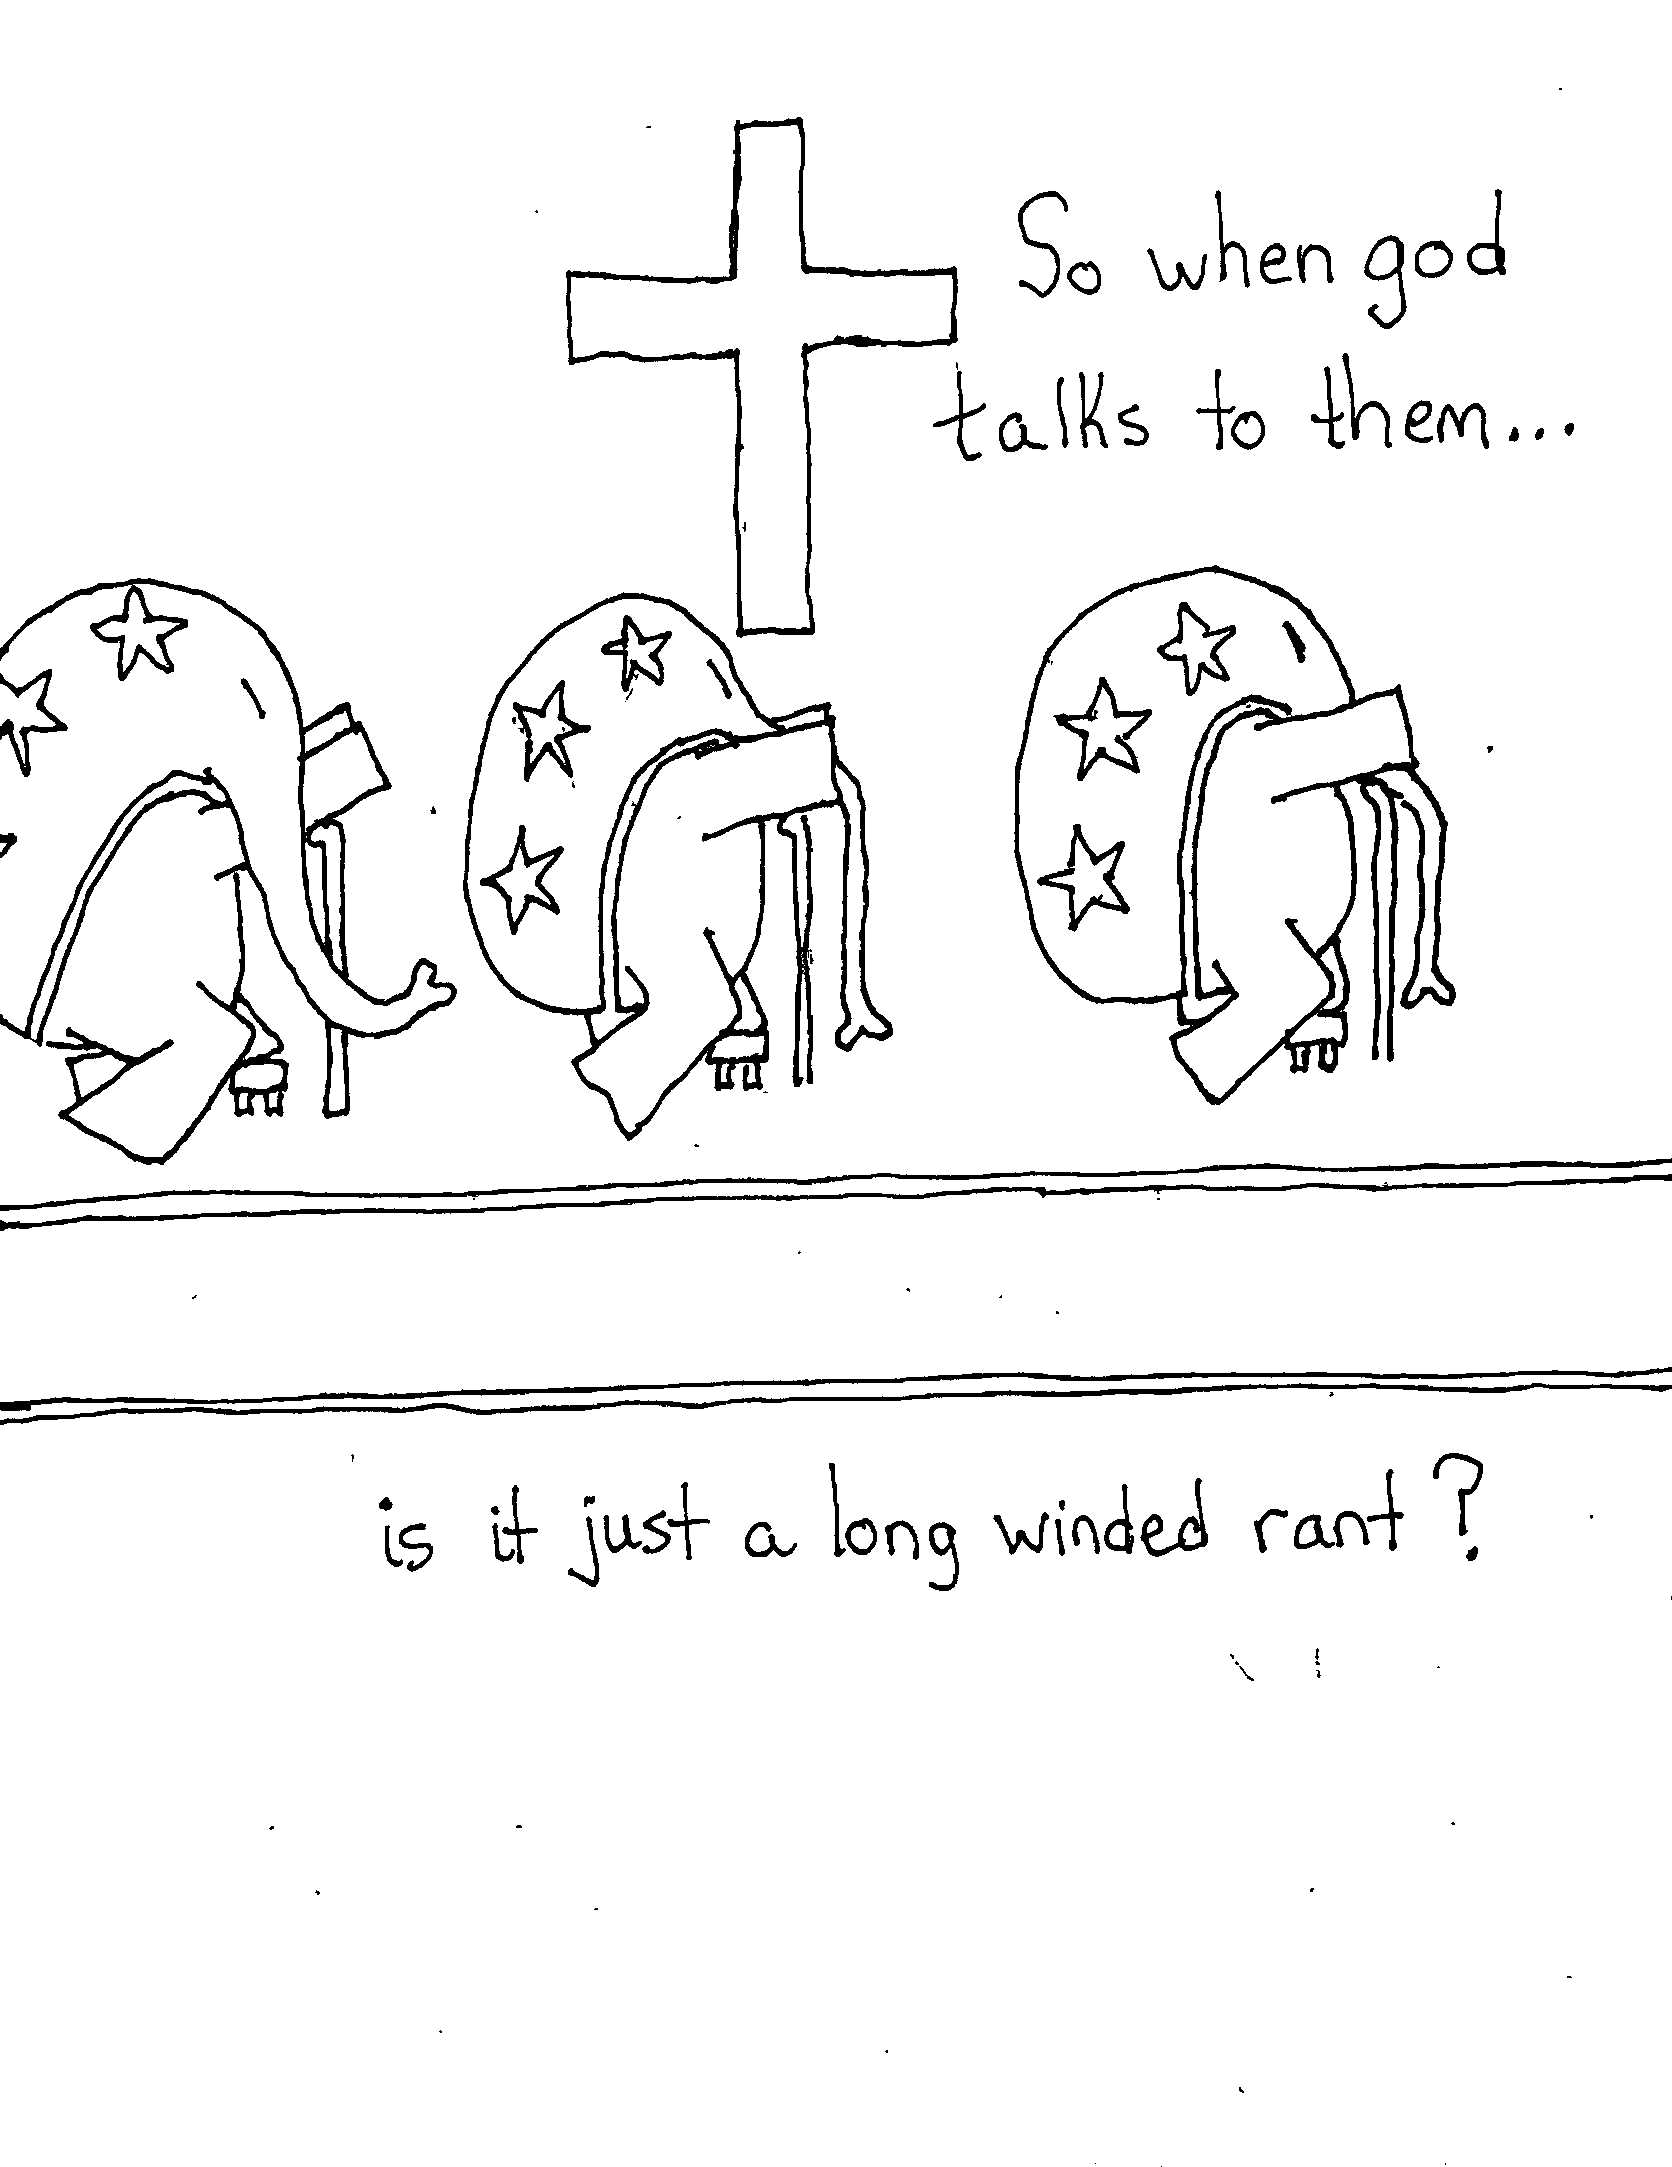 So when god
talks to them...
is it just a long winded rant?